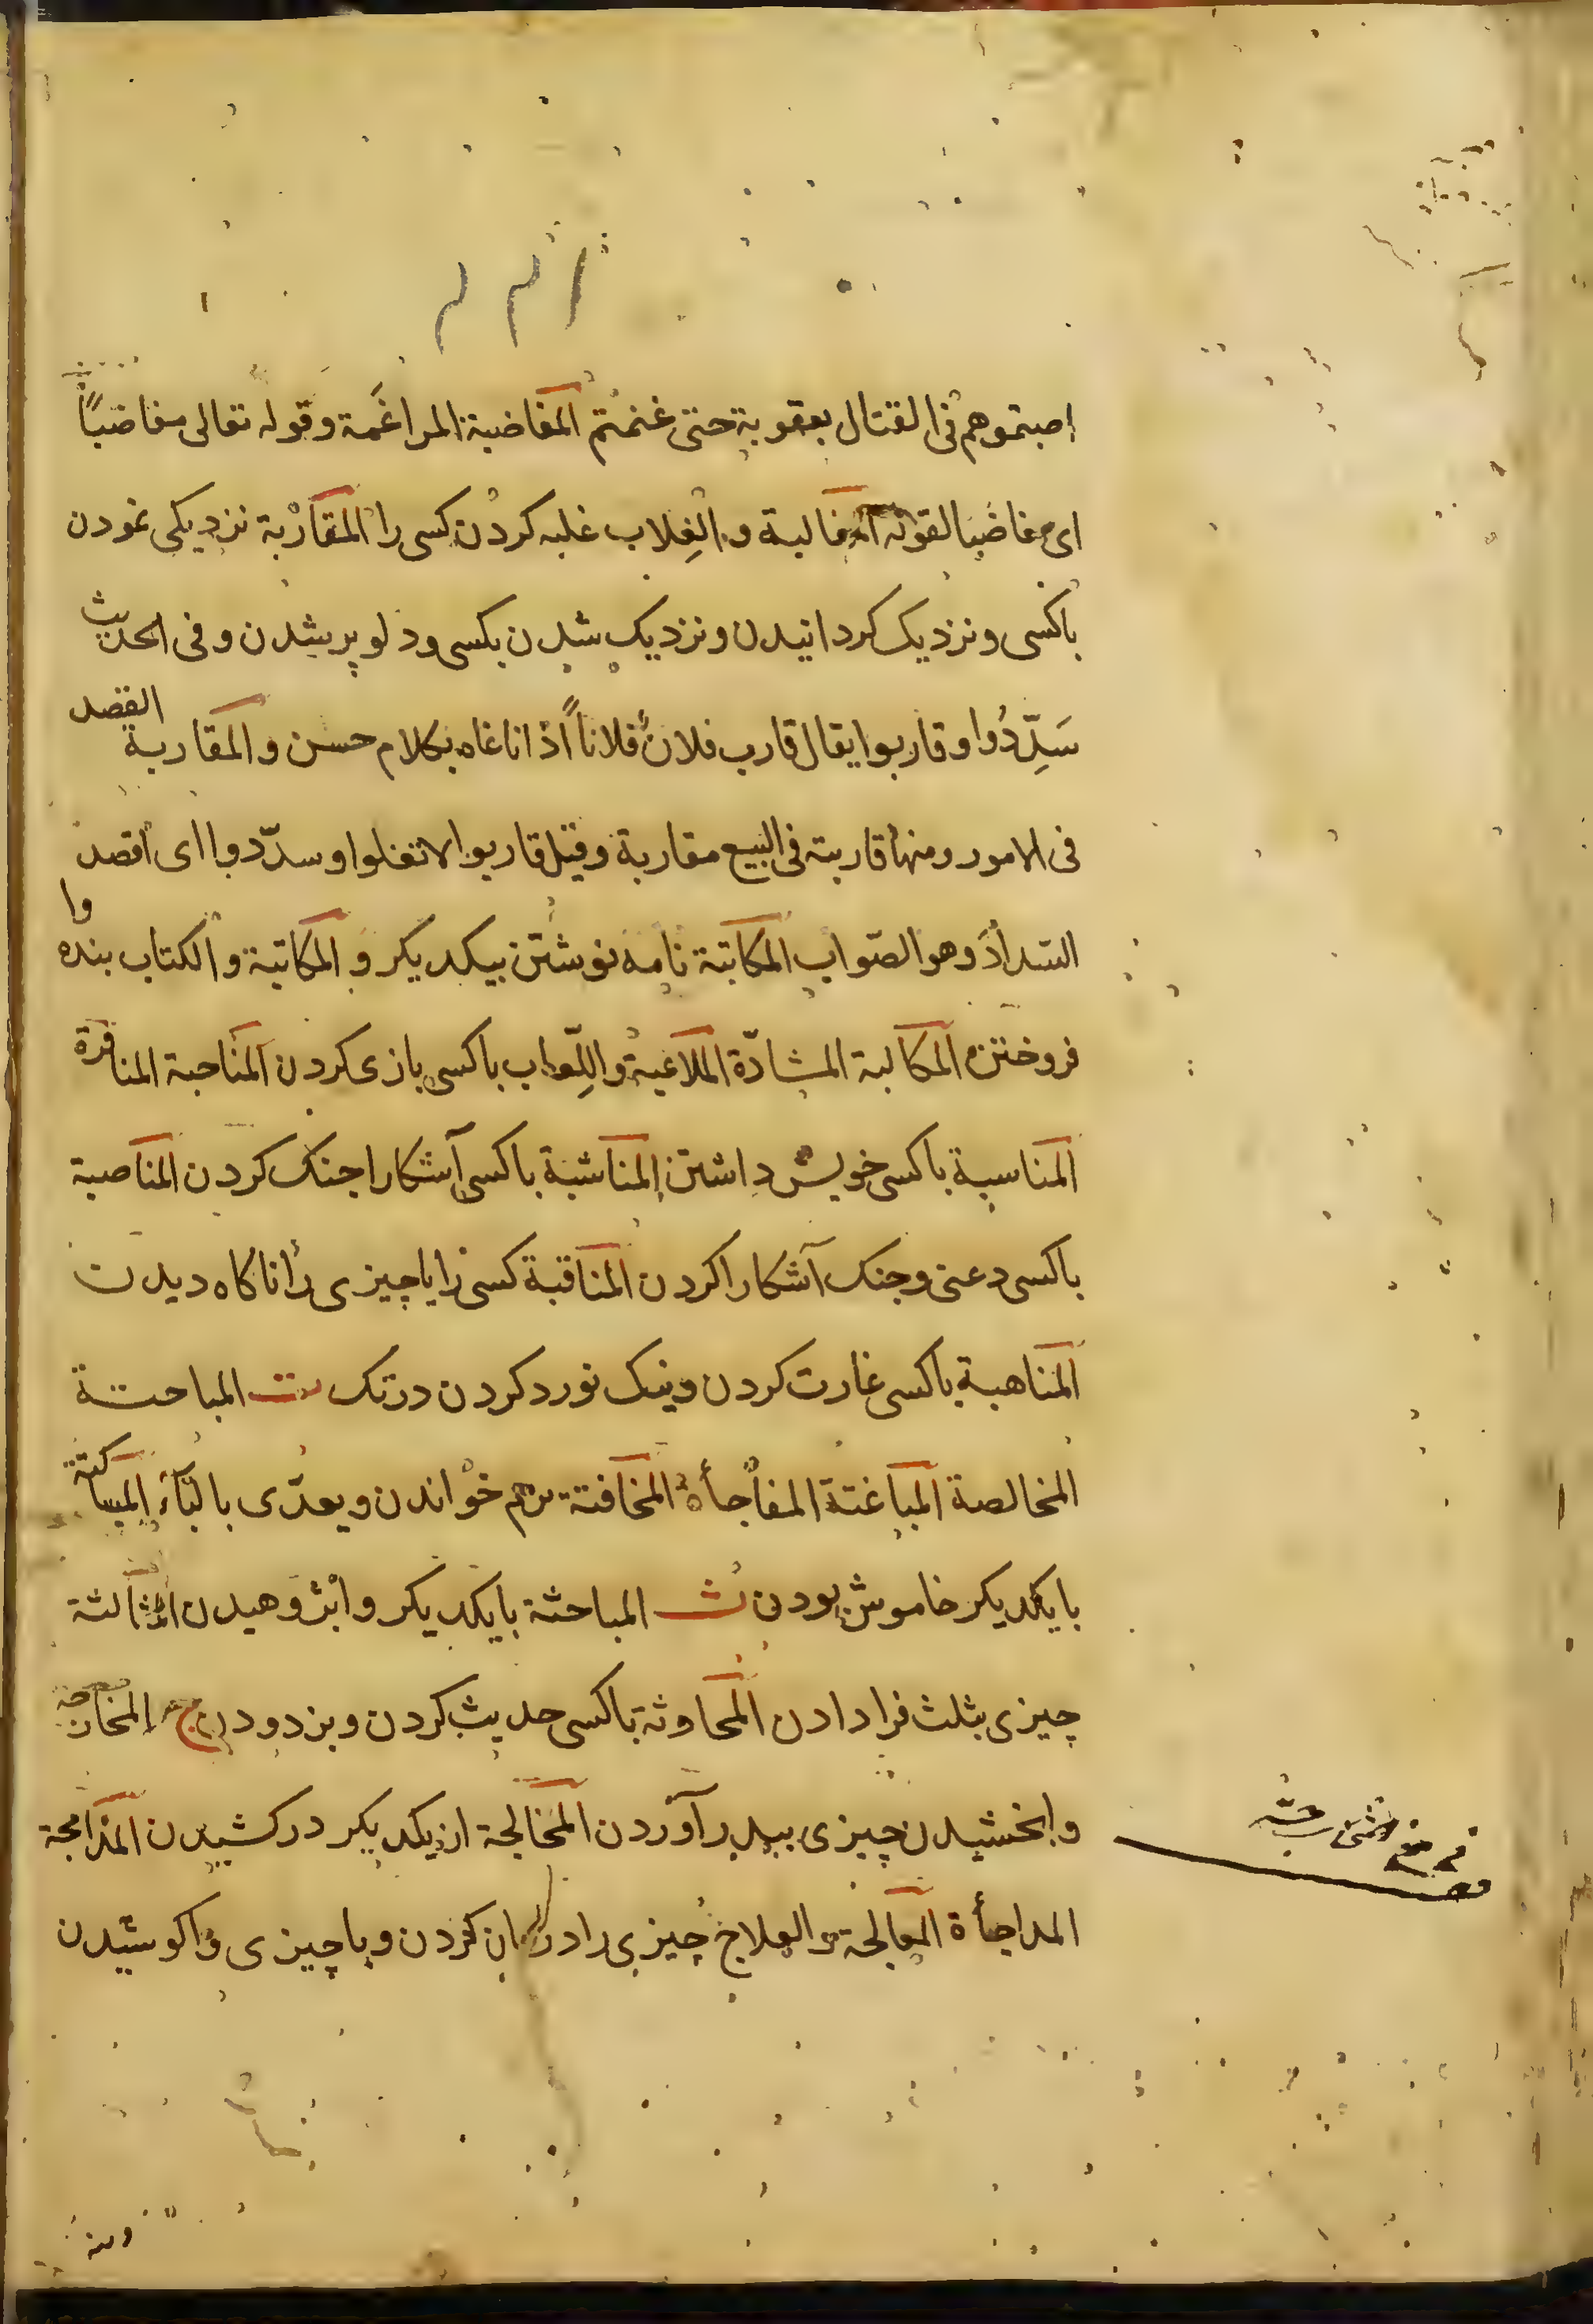 اصبتموهم فى القتال بعقوبة حتى غنمتم المغاضبة المراغمة وقوله تعالى مغاضباً
اى مغاضبا لقومه المغالبة والغِلاب غلبه كردن كسى را المقاربة نزديكى نمودن
باكسى ونزديك كردانيدن ونزديك شدن بكسى ودلو پر شدن وفى الحديث
سَدِّدُوا وقاربوا يقال قارب فلانٌ فلاناً اذا ناغاه بكلام حسن والمقاربة القصد
فى الامور ومنها قاربته فى البيع مقاربة وقيل قاربوا لا تغلوا وسدّدوا اى اقصدوا
السّداد وهو الصّواب المكاتبة نامه نوشتن بيكديكر و المكاتبة والكتاب بنده وا
فروختن المكالبة المشادّة الملاعبة واللِّعاب باكسى بازى كردن المناحبة المنافرة
المناسبة باكسى خويش داشتن المناشبة باكسى آشكارا جنك كردن المناصبة
باكسى دعنى وجنك آشكارا كردن المناقبة كسى را يا چيزى را ناكاه ديدن
المناهبة باكسى غارت كردن ونيك نورد كردن درتك ت المباحتة
المخالصة المباغتة المفاجأة المخافتة نرم خواندن ويعدّى بالباء المساكتة
بايكديكر خاموش بودن ث المباحثة بايكديكر وا پژوهيدن المثالثة
چيزى بثلث فرا دادن المحاوثة باكسى حديث كردن وبزدودن ج المخارجة
وا بخشيدن چيزى بيدر آوردن المخالجة از يكديكر دركشيدن المدامجة
المداجأة المعالجة والعلاج چيزى را درمان كردن وبا چيزى واكوشيدن